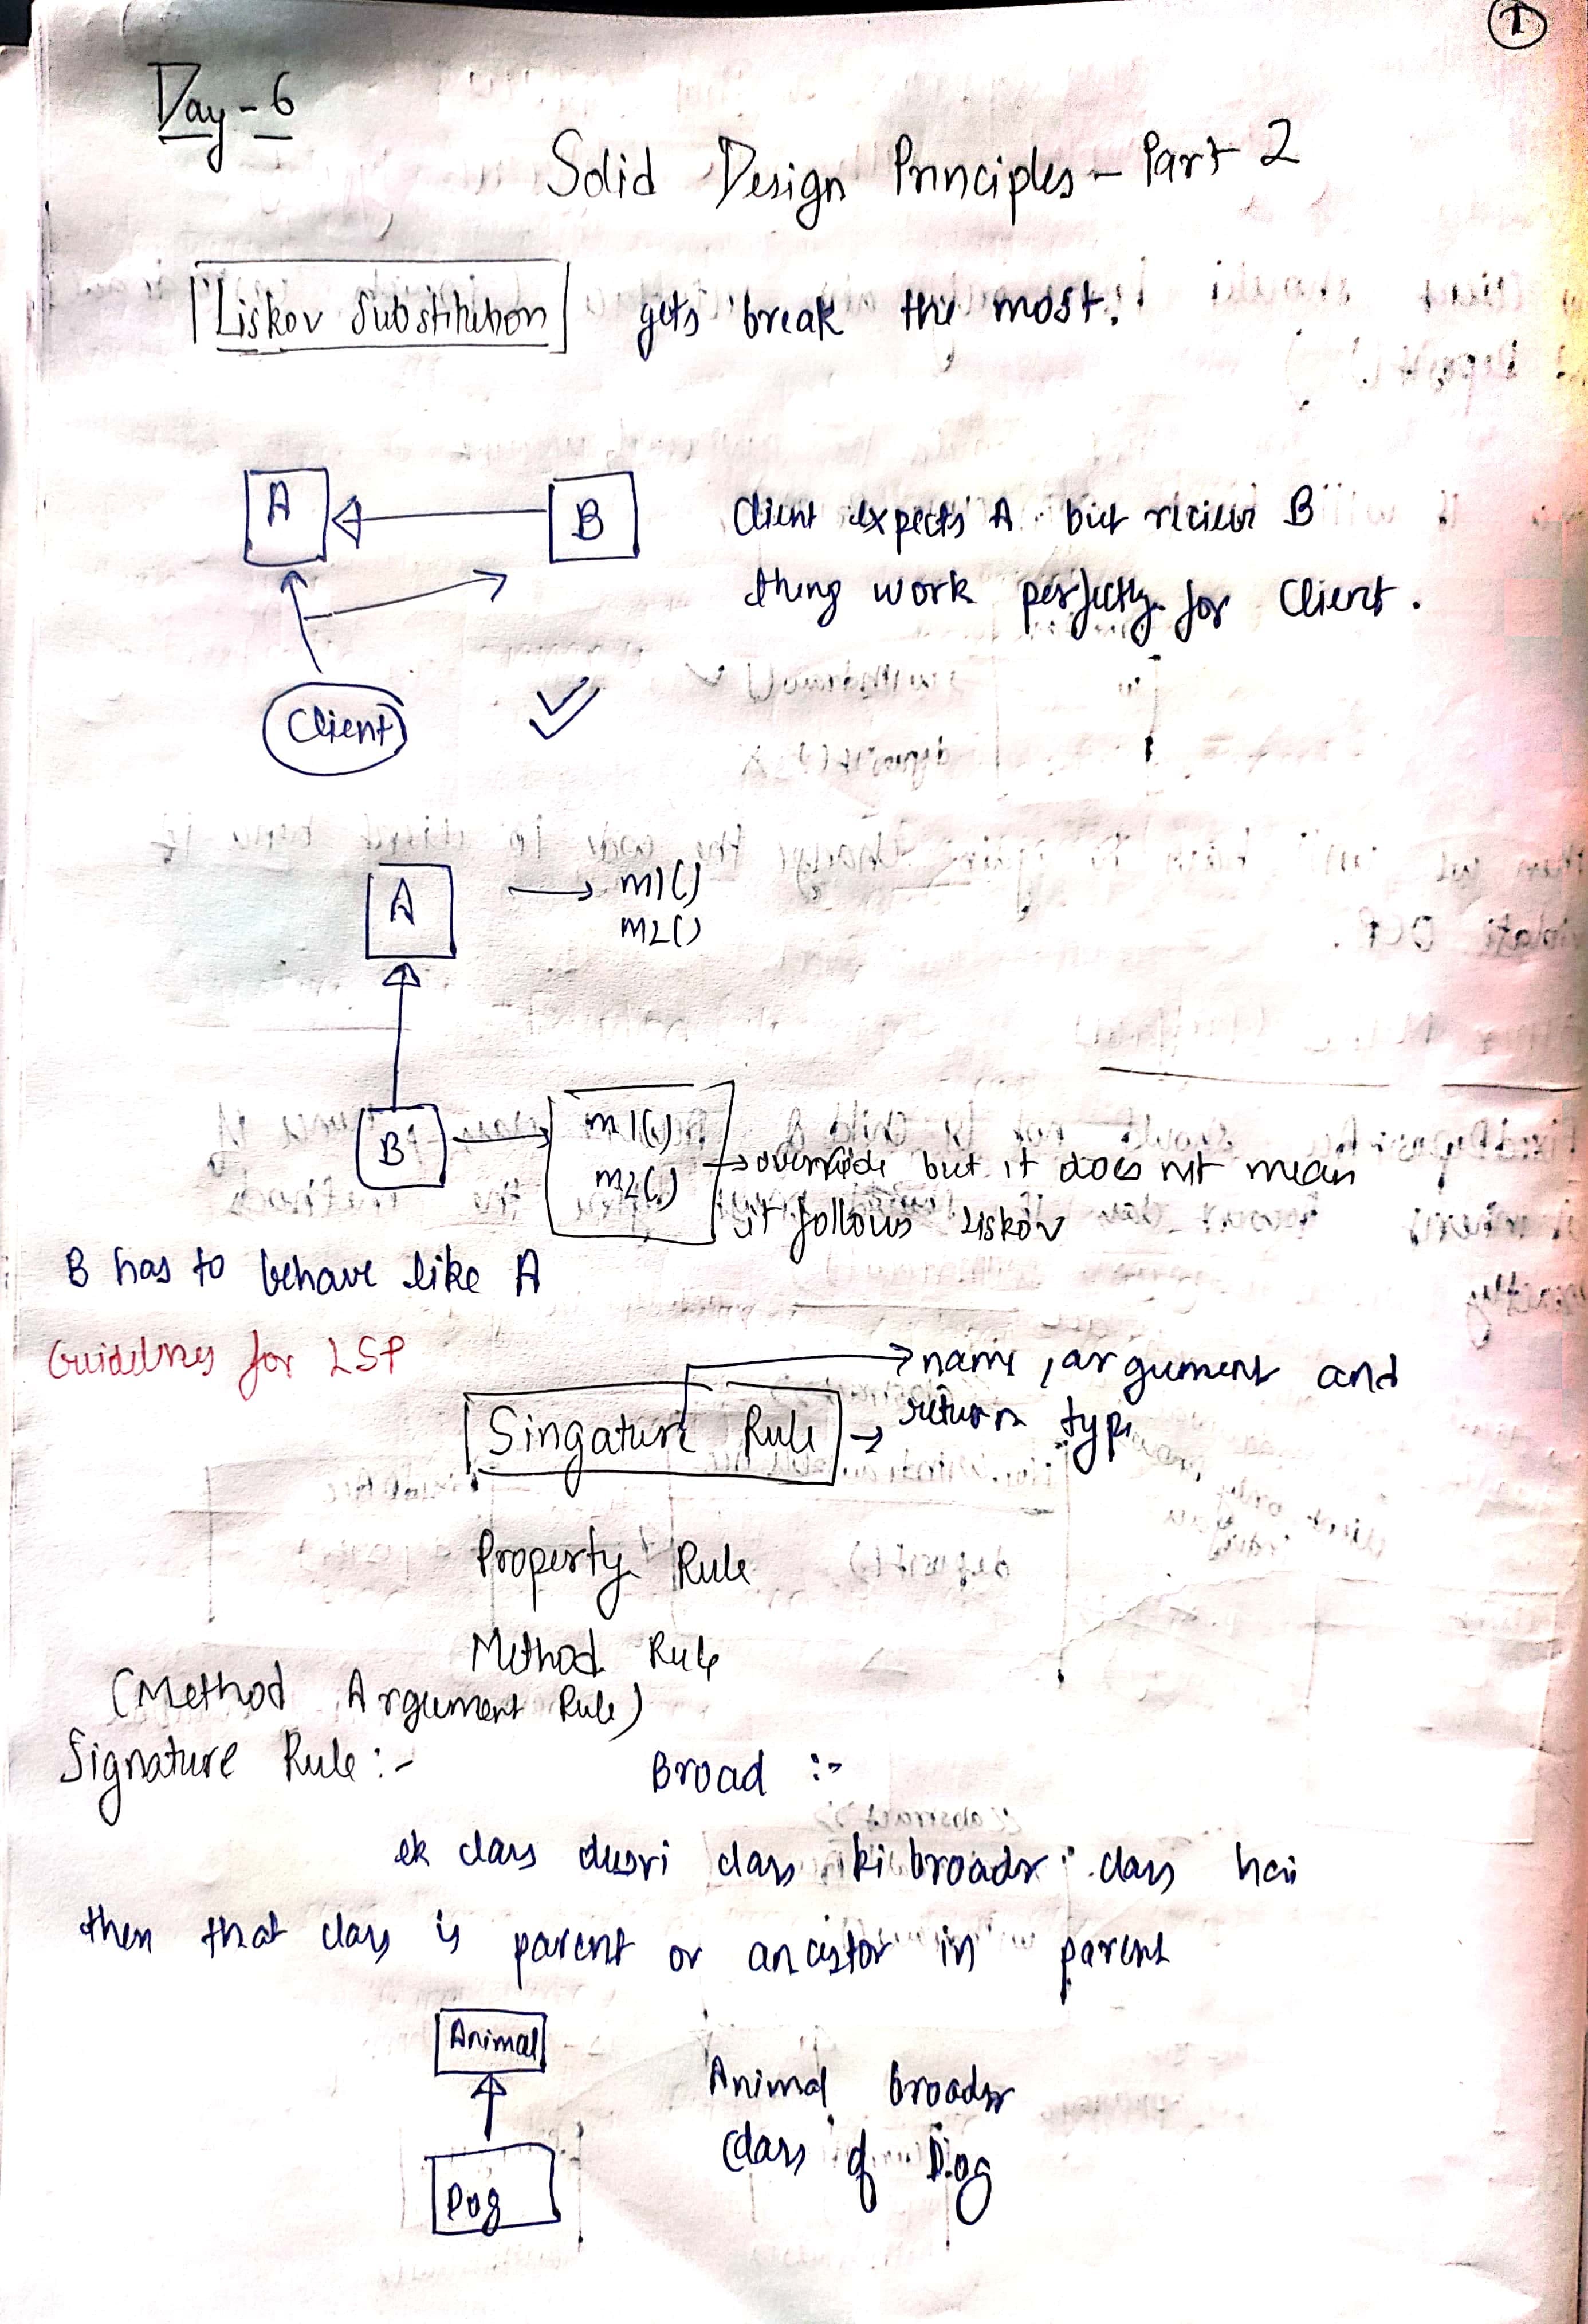 1
Day-6
Solid Design Principles - Part 2
Liskov Substitution gets break the most.
A
B
Client expects A but recieve B
thing work perfectly for Client.
Client
A
m1()
m2()
B
m1()
m2()
override but it does not mean
it follows Liskov
B has to behave like A
Guidelines for LSP
name, argument and
Singature Rule
return type
Property Rule
Method Rule
(Method Argument Rule)
Signature Rule :-
Broad :-
ek class dusri class ki broader class hai
then that class is parent or ancestor in parent
Animal
Animal broader
class of Dog
Dog